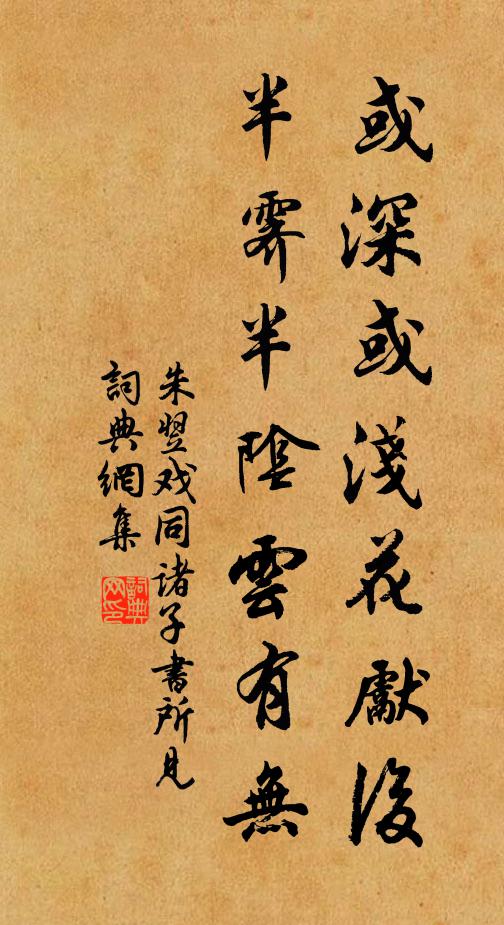 或深或淺花獻後
半霽半陰雲有無
朱翌戏同諸子書所見
詞典網集
詞典網印